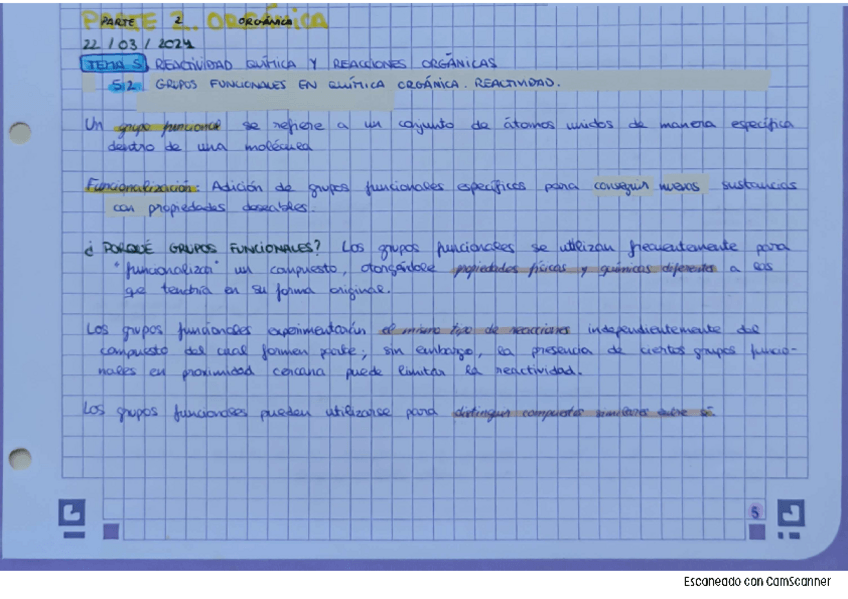 PARTE 2. ORGÁNICA
PARTE 2 ORGÁNICA
22/03/2024
TEMA 5 REACTIVIDAD QUÍMICA Y REACCIONES ORGÁNICAS
5.2. GRUPOS FUNCIONALES EN QUÍMICA ORGÁNICA. REACTIVIDAD.
Un grupo funcional se refiere a un conjunto de átomos unidos de manera específica
dentro de una molécula
Funcionalización: Adición de grupos funcionales específicos para conseguir nuevas sustancias
con propiedades deseables.
¿PORQUÉ GRUPOS FUNCIONALES? Los grupos funcionales se utilizan frecuentemente para
"funcionalizar" un compuesto, otorgándole propiedades físicas y químicas diferentes a las
que tendría en su forma original.
Los grupos funcionales experimentarán el mismo tipo de reacciones independientemente del
compuesto del cual formen parte; sin embargo, la presencia de ciertos grupos funcio-
nales en proximidad cercana puede limitar la reactividad.
Los grupos funcionales pueden utilizarse para distinguir compuestos similares entre sí.
5
Escaneado con CamScanner